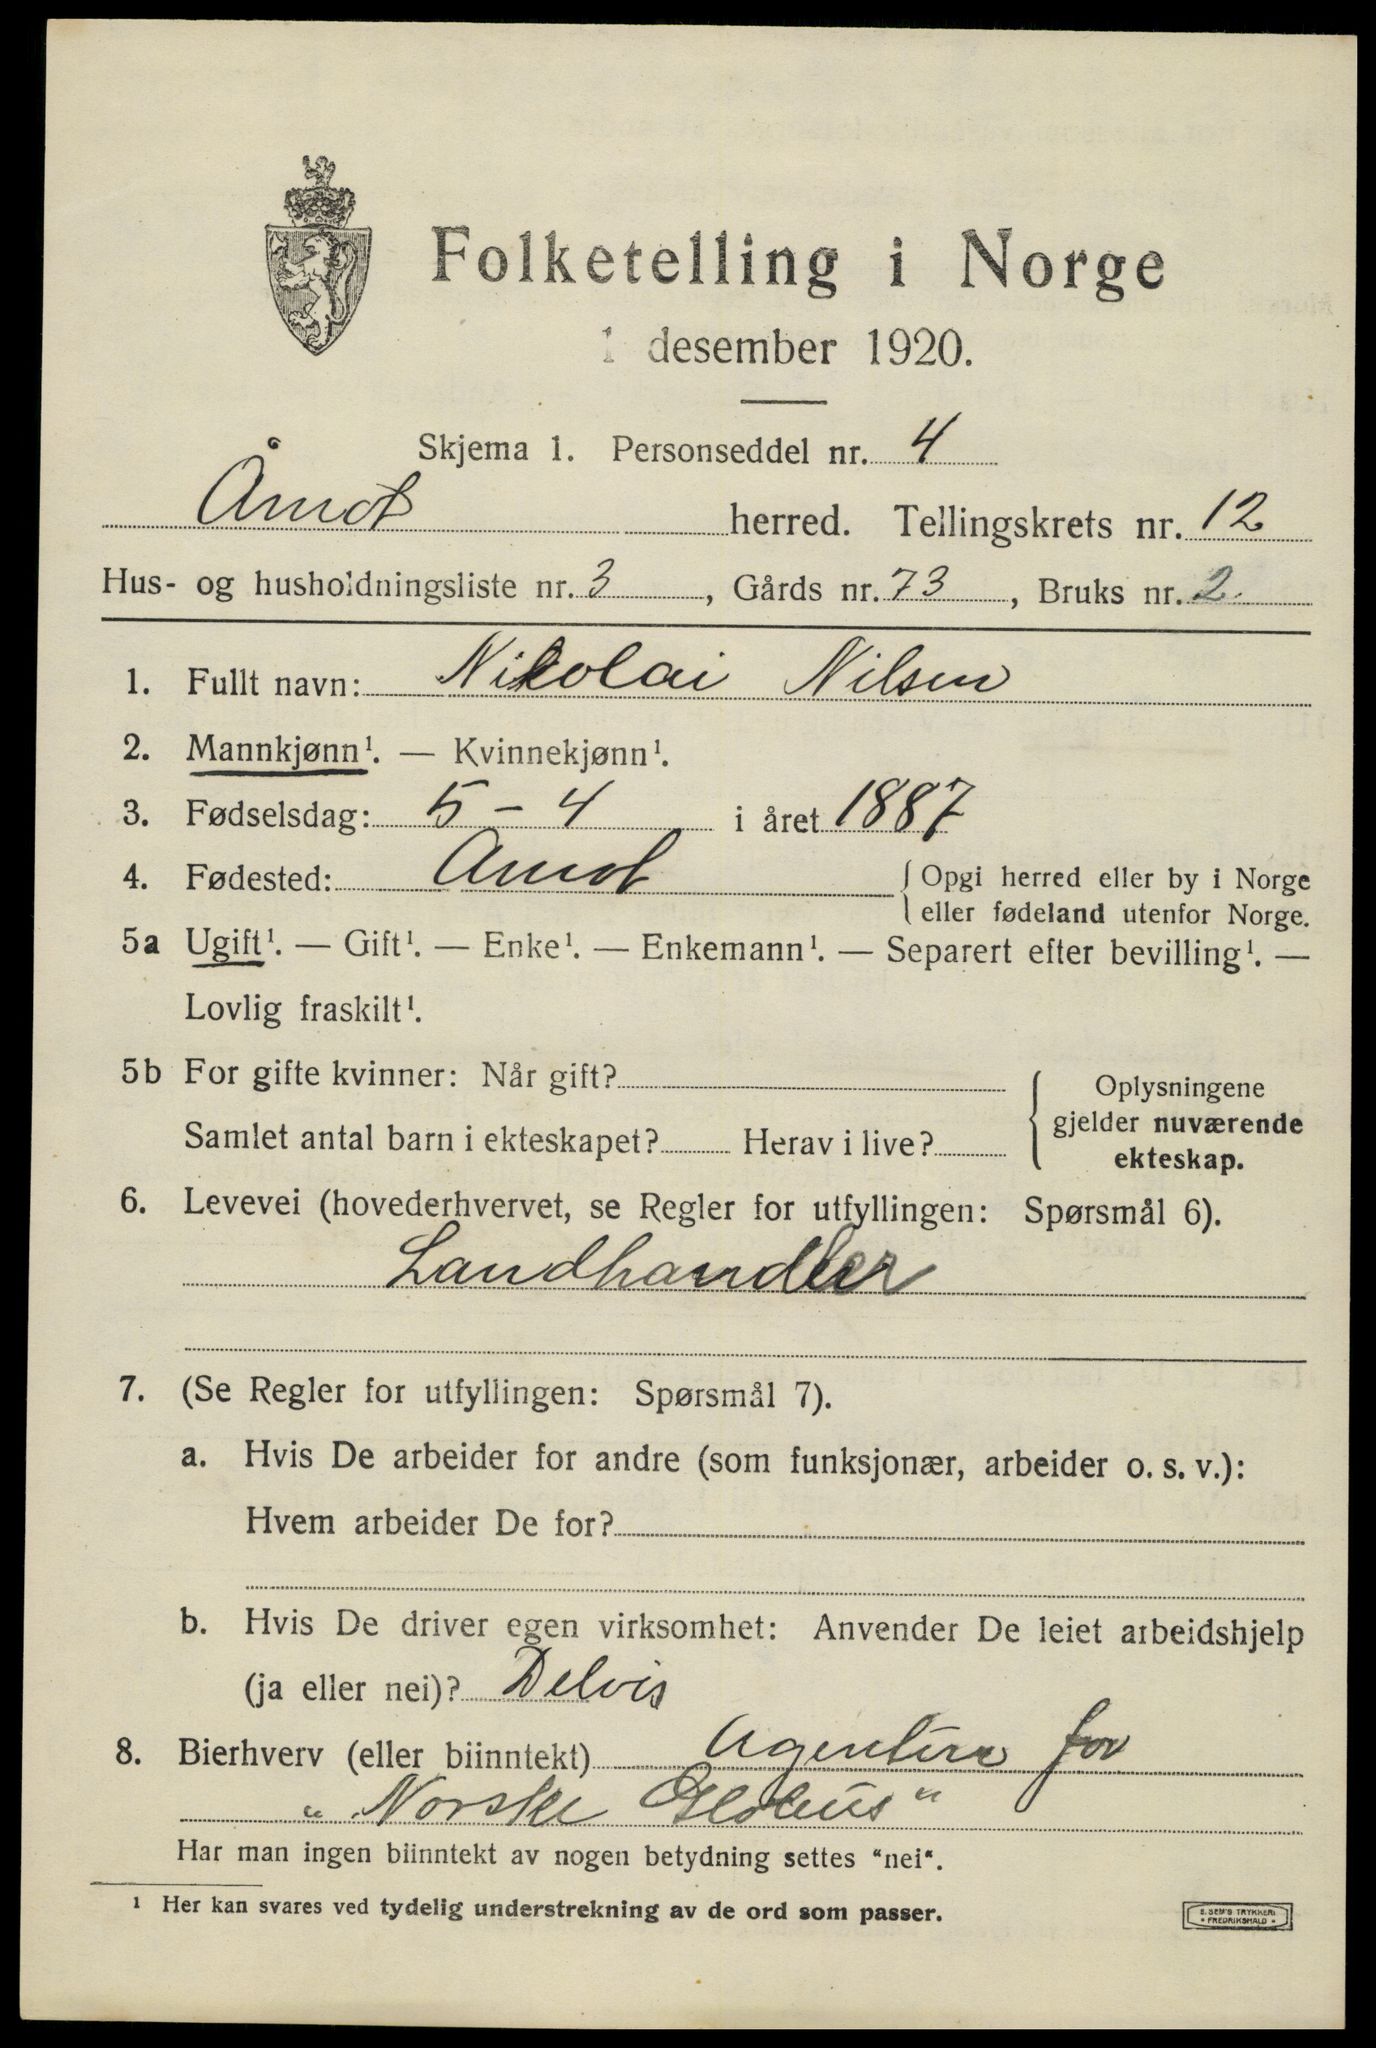 Folketelling i Norge
1 desember 1920.
Skjema 1. Personseddel nr. 4
Åmot herred. Tellingskrets nr. 12
Hus- og husholdningsliste nr. 3, Gårds nr. 73, Bruks nr. 2.
1. Fullt navn: Nikolai Nilsen
2. Mannkjønn¹. — Kvinnekjønn¹.
3. Fødselsdag: 5 - 4 i året 1887
4. Fødested: Amot { Opgi herred eller by i Norge
eller fødeland utenfor Norge.
5a Ugift¹. — Gift¹. — Enke¹. — Enkemann¹. — Separert efter bevilling¹. —
Lovlig fraskilt¹.
5b For gifte kvinner: Når gift? { Oplysningene
gjelder nuværende
Samlet antal barn i ekteskapet? Herav i live?
ekteskap.
6. Levevei (hovederhvervet, se Regler for utfyllingen: Spørsmål 6).
Landhandler
7. (Se Regler for utfyllingen: Spørsmål 7).
a. Hvis De arbeider for andre (som funksjonær, arbeider o. s. v.):
Hvem arbeider De for?
b. Hvis De driver egen virksomhet: Anvender De leiet arbeidshjelp
(ja eller nei)? Delvis
8. Bierhverv (eller biinntekt) Agentur for
"Norske Globus"
Har man ingen biinntekt av nogen betydning settes "nei".
¹ Her kan svares ved tydelig understrekning av de ord som passer.
E. SEM'S TRYKKERI
• FREDRIKSHALD •